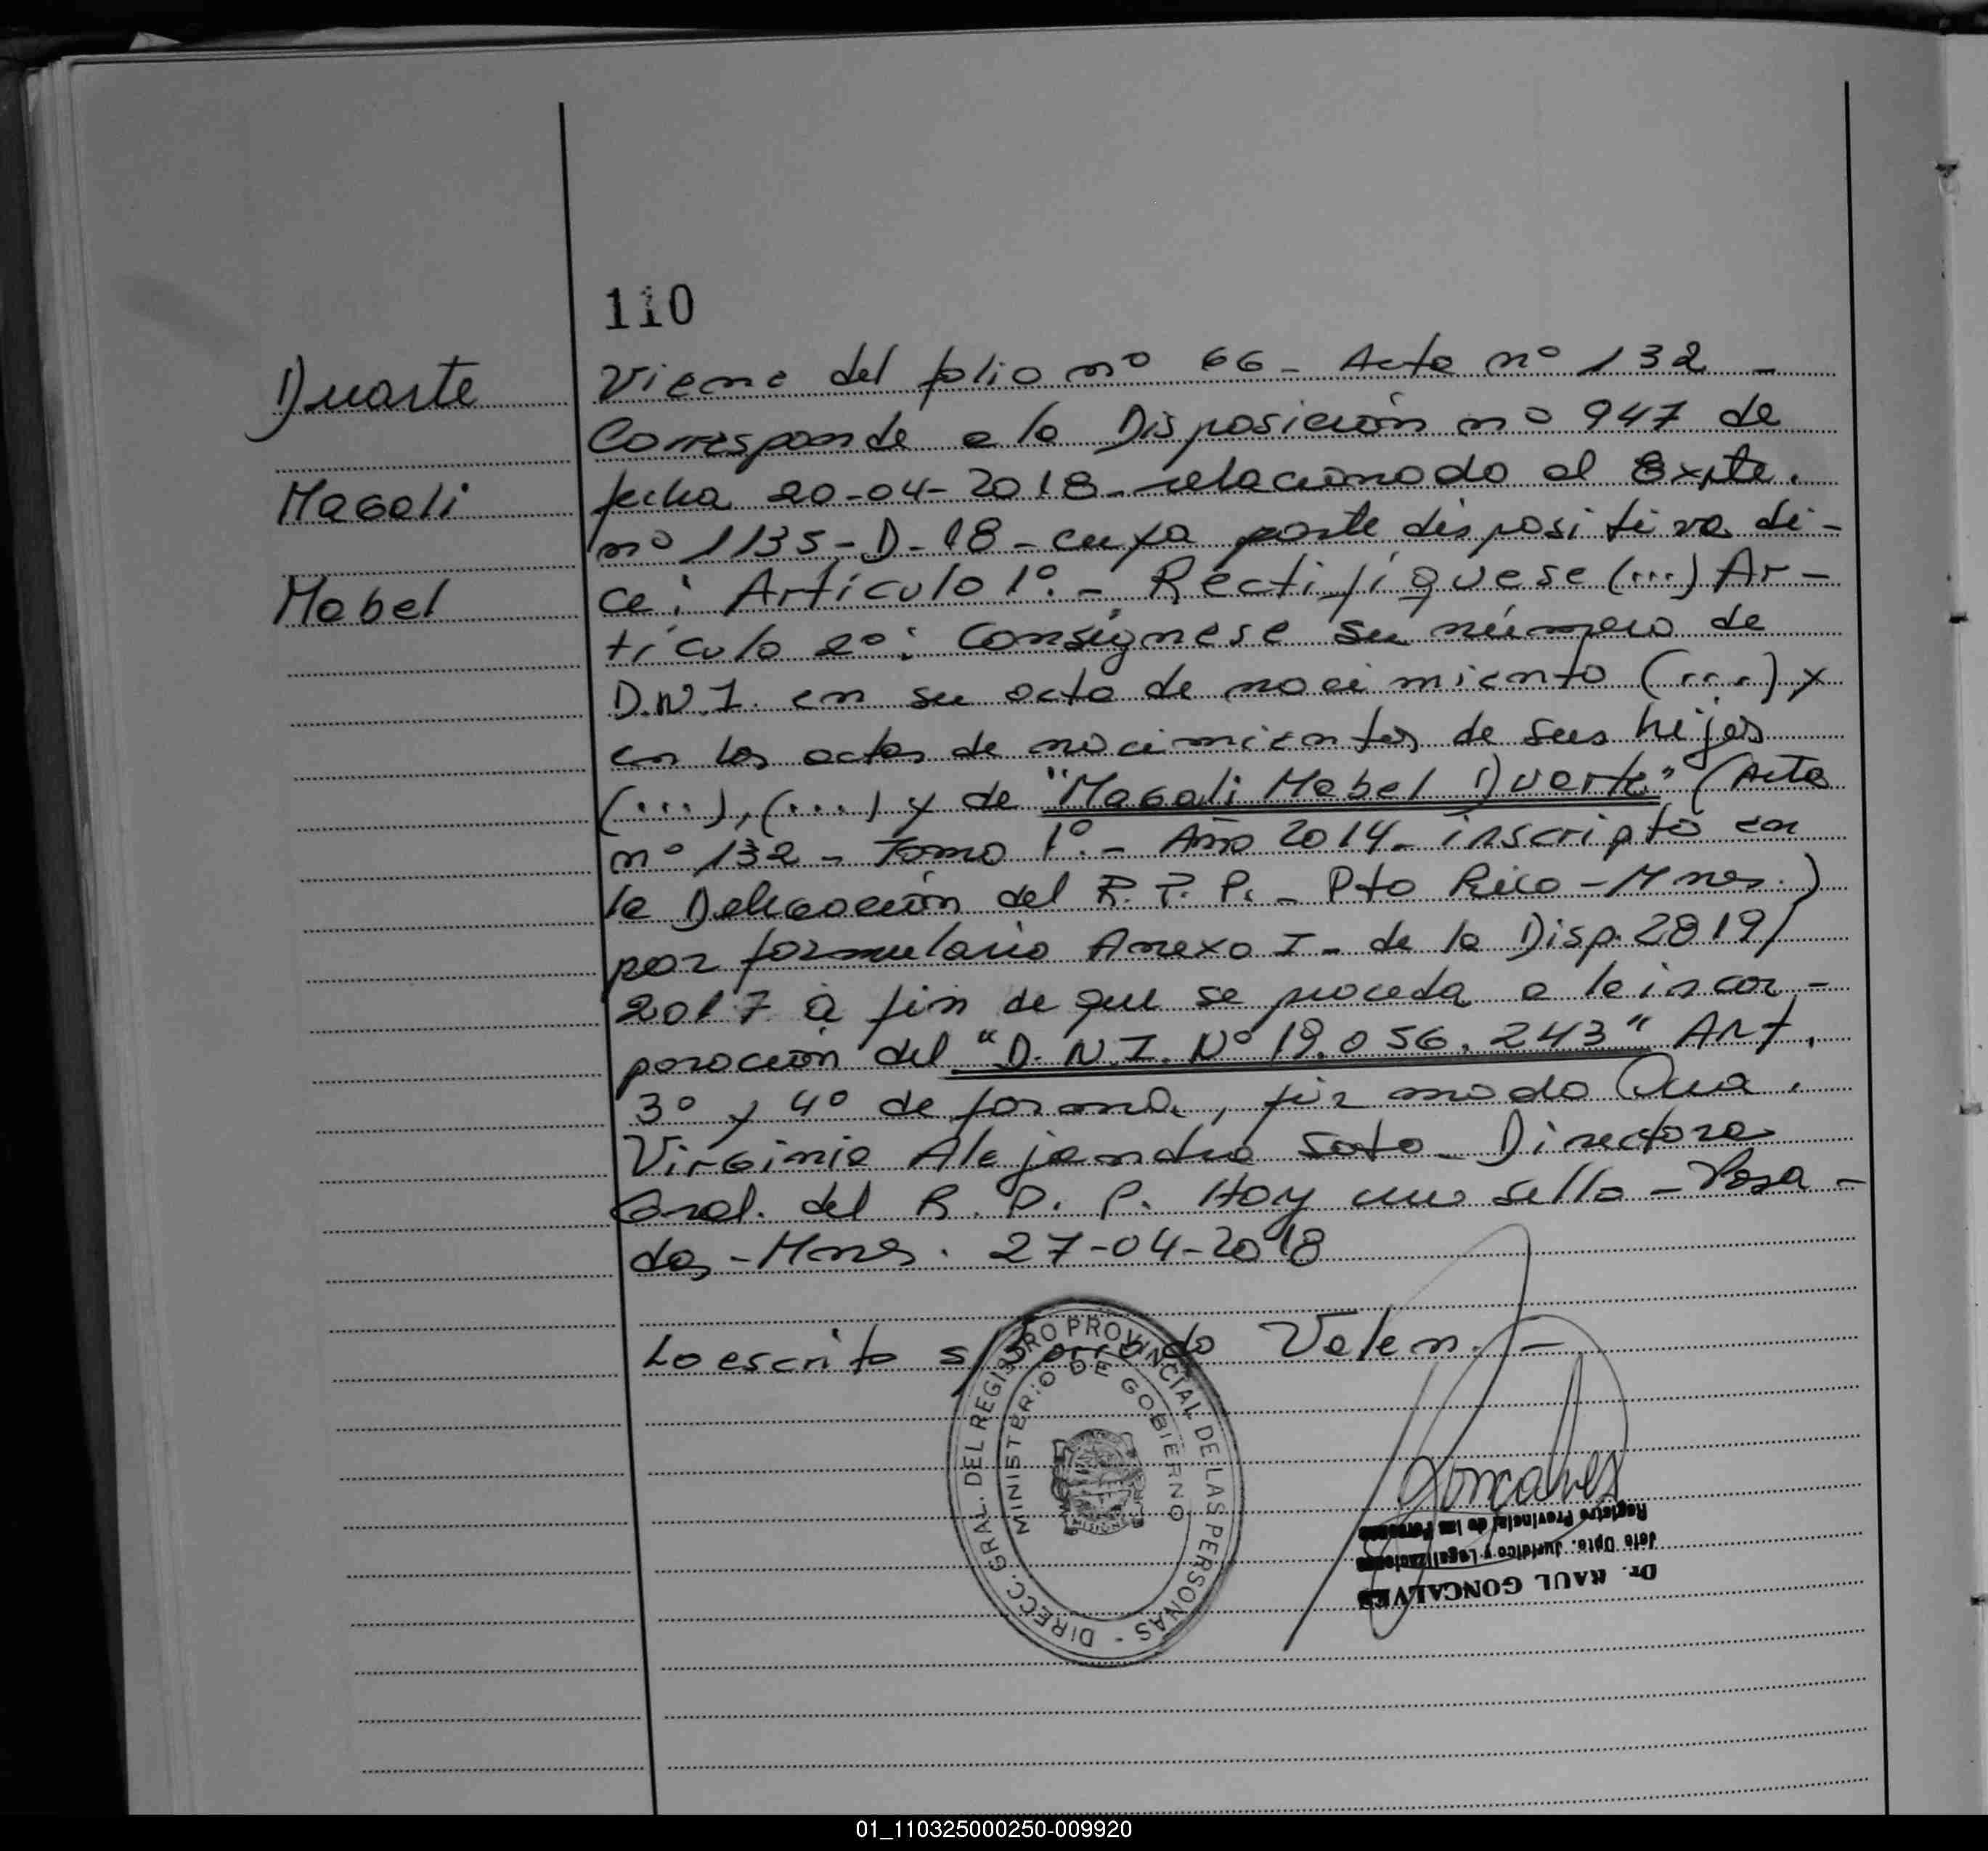 110
Duarte
Magali
Mabel
Viene del folio nº 66 - Acta nº 132 -
Corresponde a la Disposición nº 947 de
fecha 20-04-2018 - relacionado al Expte.
nº 1135-D-18 - cuya parte dispositiva di-
ce: Artículo 1º.- Rectifíquese (...) Ar-
tículo 2º: Consígnese su número de
D.N.I. en su acta de nacimiento (....) y
en las actas de nacimientos de sus hijos
(....), (....) y de "Magali Mabel Duarte" (Acta
nº 132 - Tomo 1º.- Año 2014 - inscripta en
la Delegación del R. P. P. - Pto Rico - Mnes.)
por formulario Anexo I - de la Disp. 2819/
2017 a fin de que se proceda a la incor-
poración del "D. N. I. Nº 19.056.243" Art.
3º y 4º de forma, firmado Dra.
Virginia Alejandra Soto - Directora
Gral. del R. P. P. Hay un sello - Posa-
das - Mnes. 27-04-2018
Lo escrito s/borrado Valen. -
DIRECC. GRAL. DEL REGISTRO PROVINCIAL DE LAS PERSONAS -
MINISTERIO DE GOBIERNO
MISIONES
Goncalves
Dr. RAUL GONCALVES
Jefe Dpto. Jurídico y Legalizaciones
Registro Provincial de las Personas
01_110325000250-009920